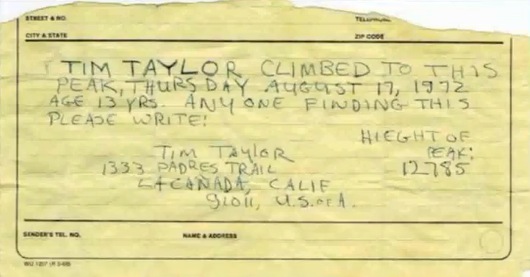 STREET & NO. TELEPHONE
CITY & STATE ZIP CODE
TIM TAYLOR CLIMBED TO THIS
PEAK, THURSDAY AUGUST 17, 1972
AGE 13 YRS. ANY ONE FINDING THIS
PLEASE WRITE!
HIEGHT OF
PEAK:
12785
TIM TAYLOR
1333 PADRES TRAIL
LA CANADA, CALIF
91011, U.S. OF A.
SENDER'S TEL. NO. NAME & ADDRESS
WU 1207 (R 5-69)